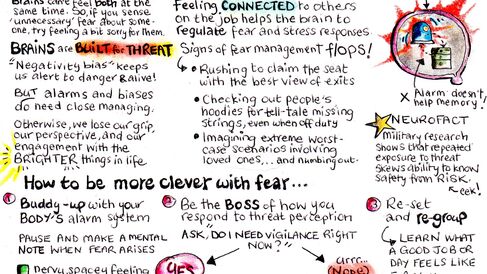 Brains can't feel both at the
same time. So, if you sense
'unnecessary' fear about some-
one, try feeling a bit sorry for them.
BRAINS are BUILT for THREAT
"Negativity bias" keeps
us alert to danger & alive!
BUT alarms and biases
do need close managing.
Otherwise, we lose our grip,
our perspective, and our
engagement with the
BRIGHTER things in life
feeling CONNECTED to others
on the job helps the brain to
regulate fear and stress responses.
Signs of fear management flops!
• Rushing to claim the seat
with the best view of exits
• Checking out people's
hoodies for tell-tale missing
strings, even when off duty
• Imagining extreme worst-
case scenarios involving
loved ones... and numbing out.
X Alarm doesn't
help memory!
NEUROFACT
Military research
shows that repeated
exposure to threat
skews ability to know
safety from RISK.
eek!
How to be more clever with fear...
1 Buddy-up with your
BODY'S alarm system
PAUSE AND MAKE A MENTAL
NOTE WHEN FEAR ARISES
nervy, spacey feeling
2 Be the BOSS of how you
respond to threat perception
ASK, DO I NEED VIGILANCE RIGHT
NOW?"
YES
urrr...
3 Re-set
and re-group
LEARN WHAT
A GOOD JOB OR
DAY FEELS LIKE